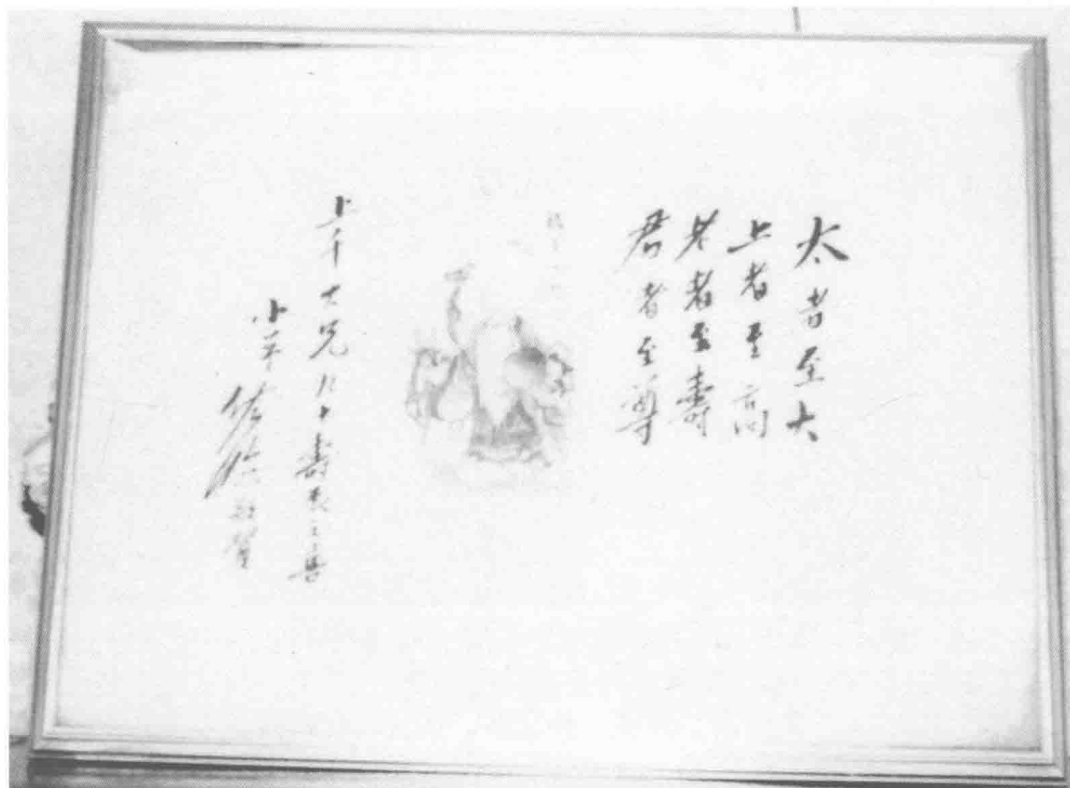 太者至大
上者至高
老者至壽
君者至尊
上千大兄九十壽辰之喜
小弟 敬賀